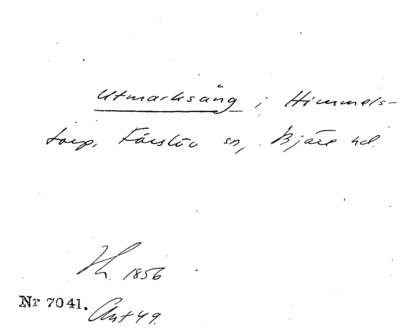 Utmarksäng i Himmels-
torp, Förslöv sn, Bjäre hd.
Hl. 1856
Nr 7041.
Ant 49.